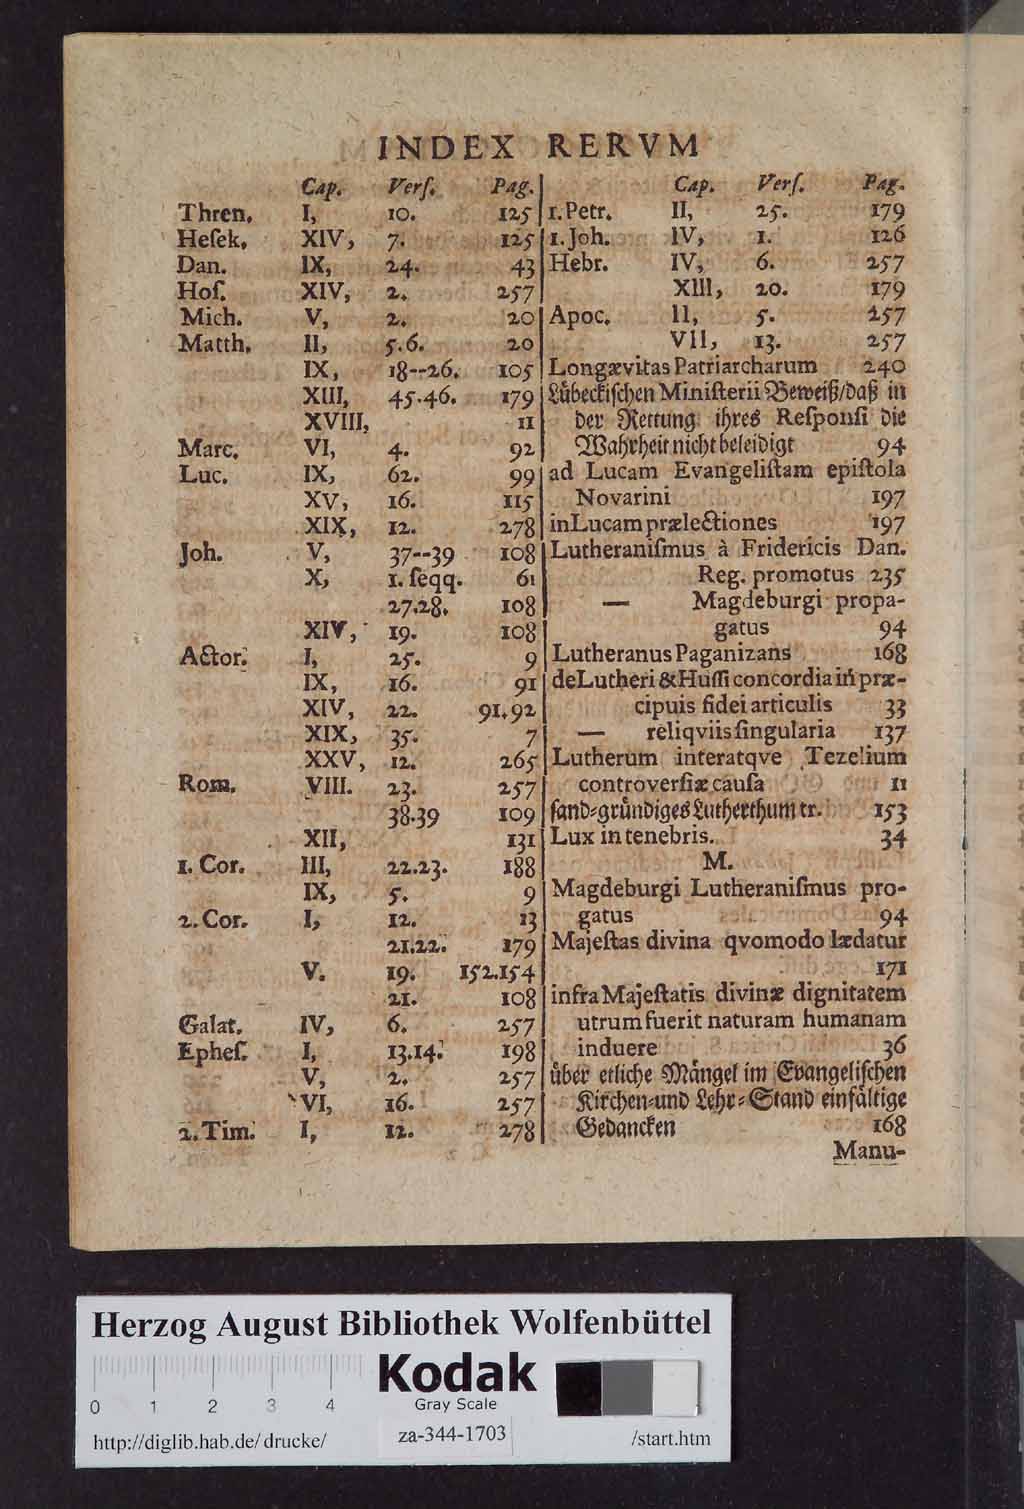 INDEX RERVM
Cap. Verſ. Pag.
Thren. I, 10. 125
Heſek. XIV, 7. 125
Dan. IX, 24. 43
Hoſ. XIV, 2. 257
Mich. V, 2. 20
Matth. II, 5.6. 20
IX, 18--26. 105
XIII, 45.46. 179
XVIII, 11
Marc. VI, 4. 92
Luc. IX, 62. 99
XV, 16. 115
XIX, 12. 278
Joh. V, 37--39 108
X, 1. ſeqq. 61
27.28. 108
XIV, 19. 108
Actor. I, 25. 9
IX, 16. 91
XIV, 22. 91.92
XIX, 35. 7
XXV, 12. 265
Rom. VIII. 23. 257
38.39 109
XII, 131
1. Cor. III, 22.23. 188
IX, 5. 9
2. Cor. I, 12. 13
21.22. 179
V. 19. 152.154
21. 108
Galat. IV, 6. 257
Epheſ. I, 13.14. 198
V, 2. 257
VI, 16. 257
2. Tim. I, 12. 278
Cap. Verſ. Pag.
1. Petr. II, 25. 179
1. Joh. IV, 1. 126
Hebr. IV, 6. 257
XIII, 20. 179
Apoc. II, 5. 257
VII, 13. 257
Longævitas Patriarcharum 240
Lübeckiſchen Miniſterii Beweiß/daß in
der Rettung ihres Reſponſi die
Wahrheit nicht beleidigt 94
ad Lucam Evangeliſtam epiſtola
Novarini 197
in Lucam prælectiones 197
Lutheraniſmus à Fridericis Dan.
Reg. promotus 235
— Magdeburgi propa-
gatus 94
Lutheranus Paganizans 168
de Lutheri & Huſſi concordia in præ-
cipuis fidei articulis 33
— reliqviis ſingularia 137
Lutherum inter atqve Tezelium
controverſiæ cauſa 11
ſand-gründiges Lutherthum tr. 153
Lux in tenebris. 34
M.
Magdeburgi Lutheraniſmus pro-
gatus 94
Majeſtas divina qvomodo lædatur
171
infra Majeſtatis divinæ dignitatem
utrum fuerit naturam humanam
induere 36
über etliche Mängel im Evangeliſchen
Kirchen-und Lehr-Stand einfältige
Gedancken 168
Manu-
Herzog August Bibliothek Wolfenbüttel
0 1 2 3 4
Kodak
Gray Scale
http://diglib.hab.de/drucke/ za-344-1703 /start.htm